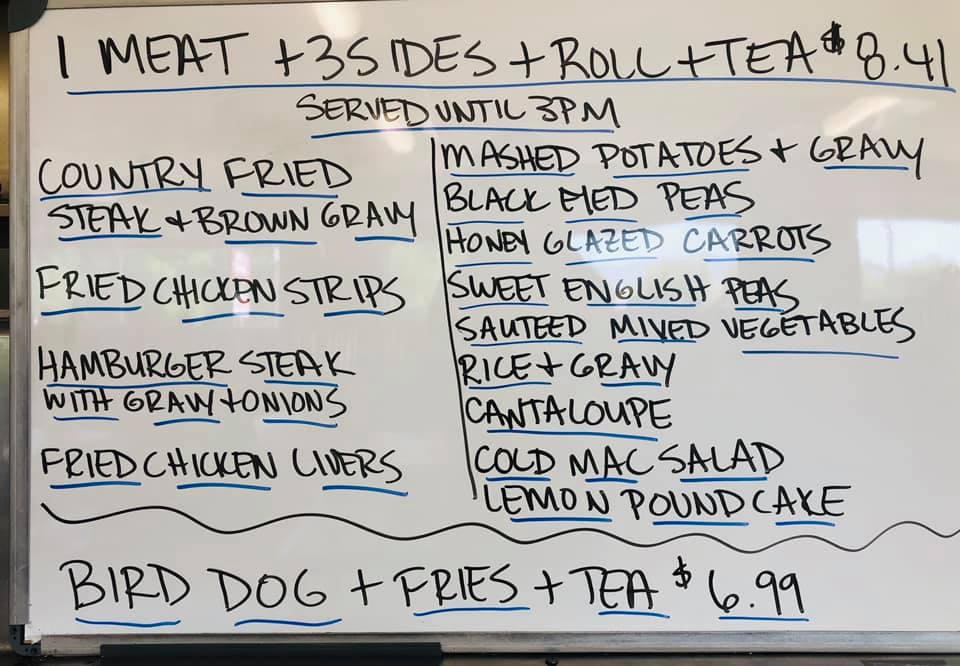 1 MEAT + 3 SIDES + ROLL + TEA $8.41
SERVED UNTIL 3PM
COUNTRY FRIED
STEAK + BROWN GRAVY
FRIED CHICKEN STRIPS
HAMBURGER STEAK
WITH GRAVY + ONIONS
FRIED CHICKEN LIVERS
MASHED POTATOES + GRAVY
BLACK EYED PEAS
HONEY GLAZED CARROTS
SWEET ENGLISH PEAS
SAUTEED MIXED VEGETABLES
RICE + GRAVY
CANTALOUPE
COLD MAC SALAD
LEMON POUND CAKE
BIRD DOG + FRIES + TEA $6.99